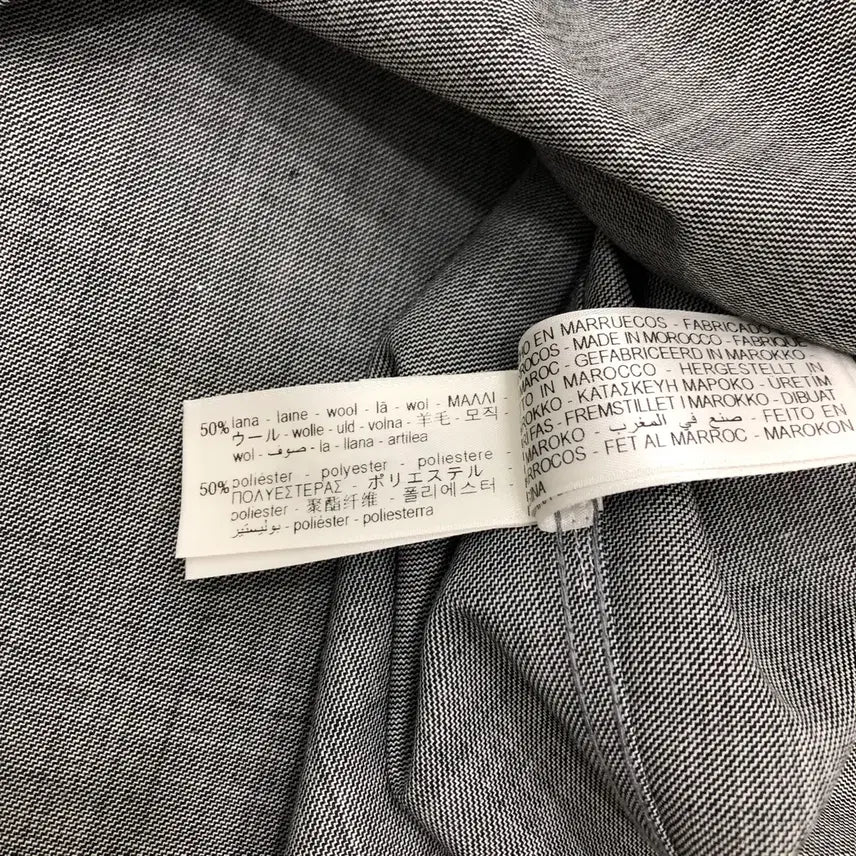 50% lana - laine - wool - lã - wol - ΜΑΛΛΙ -
ウール - wolle - uld - volna - 羊毛 - 모직 -
wol - صوف - la - llana - artilea
50% poliéster - polyester - poliestere -
ΠΟΛΥΕΣΤΕΡΑΣ - ポリエステル -
poliester - 聚酯纤维 - 폴리에스터 -
بوليستيز - poliéster - poliesterra
EN MARRUECOS - FABRICADO
MADE IN MOROCCO -
MAROC - GEFABRICEERD IN MAROKKO -
IN MAROCCO - HERGESTELLT IN
ΚΑΤΑΣΚΕΥΗ ΜΑΡΟΚΟ - ÜRETIM
FREMSTILLET I MAROKKO - DIBUAT
MAROKO - صنع في المغرب - FEITO EN
MARROCOS - FET AL MARROC - MAROKON